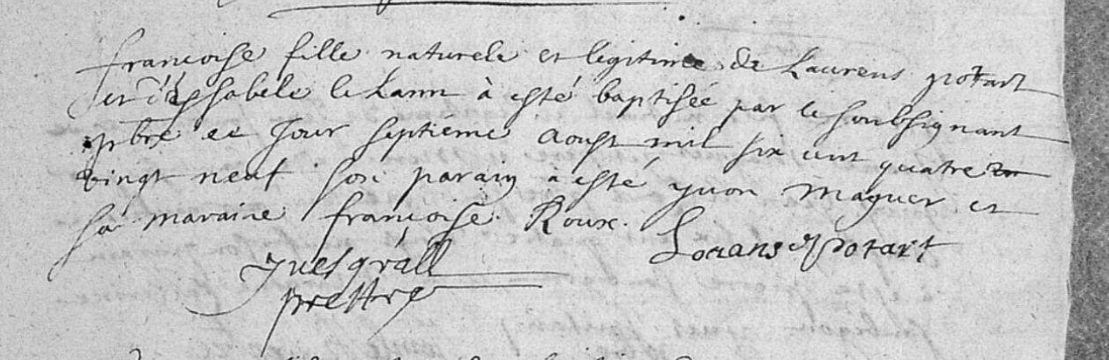 francoise fille naturele et legitime de Laurens potart
et d'ysabele le Lann à esté baptisée par le soubsignant
pbre ce Jour septieme Aoust mil six cent quatre
vingt neuf son parain a esté yvon Maguer et
sa maraine francoise Roux.
Lorans potart
yves grall
prettre